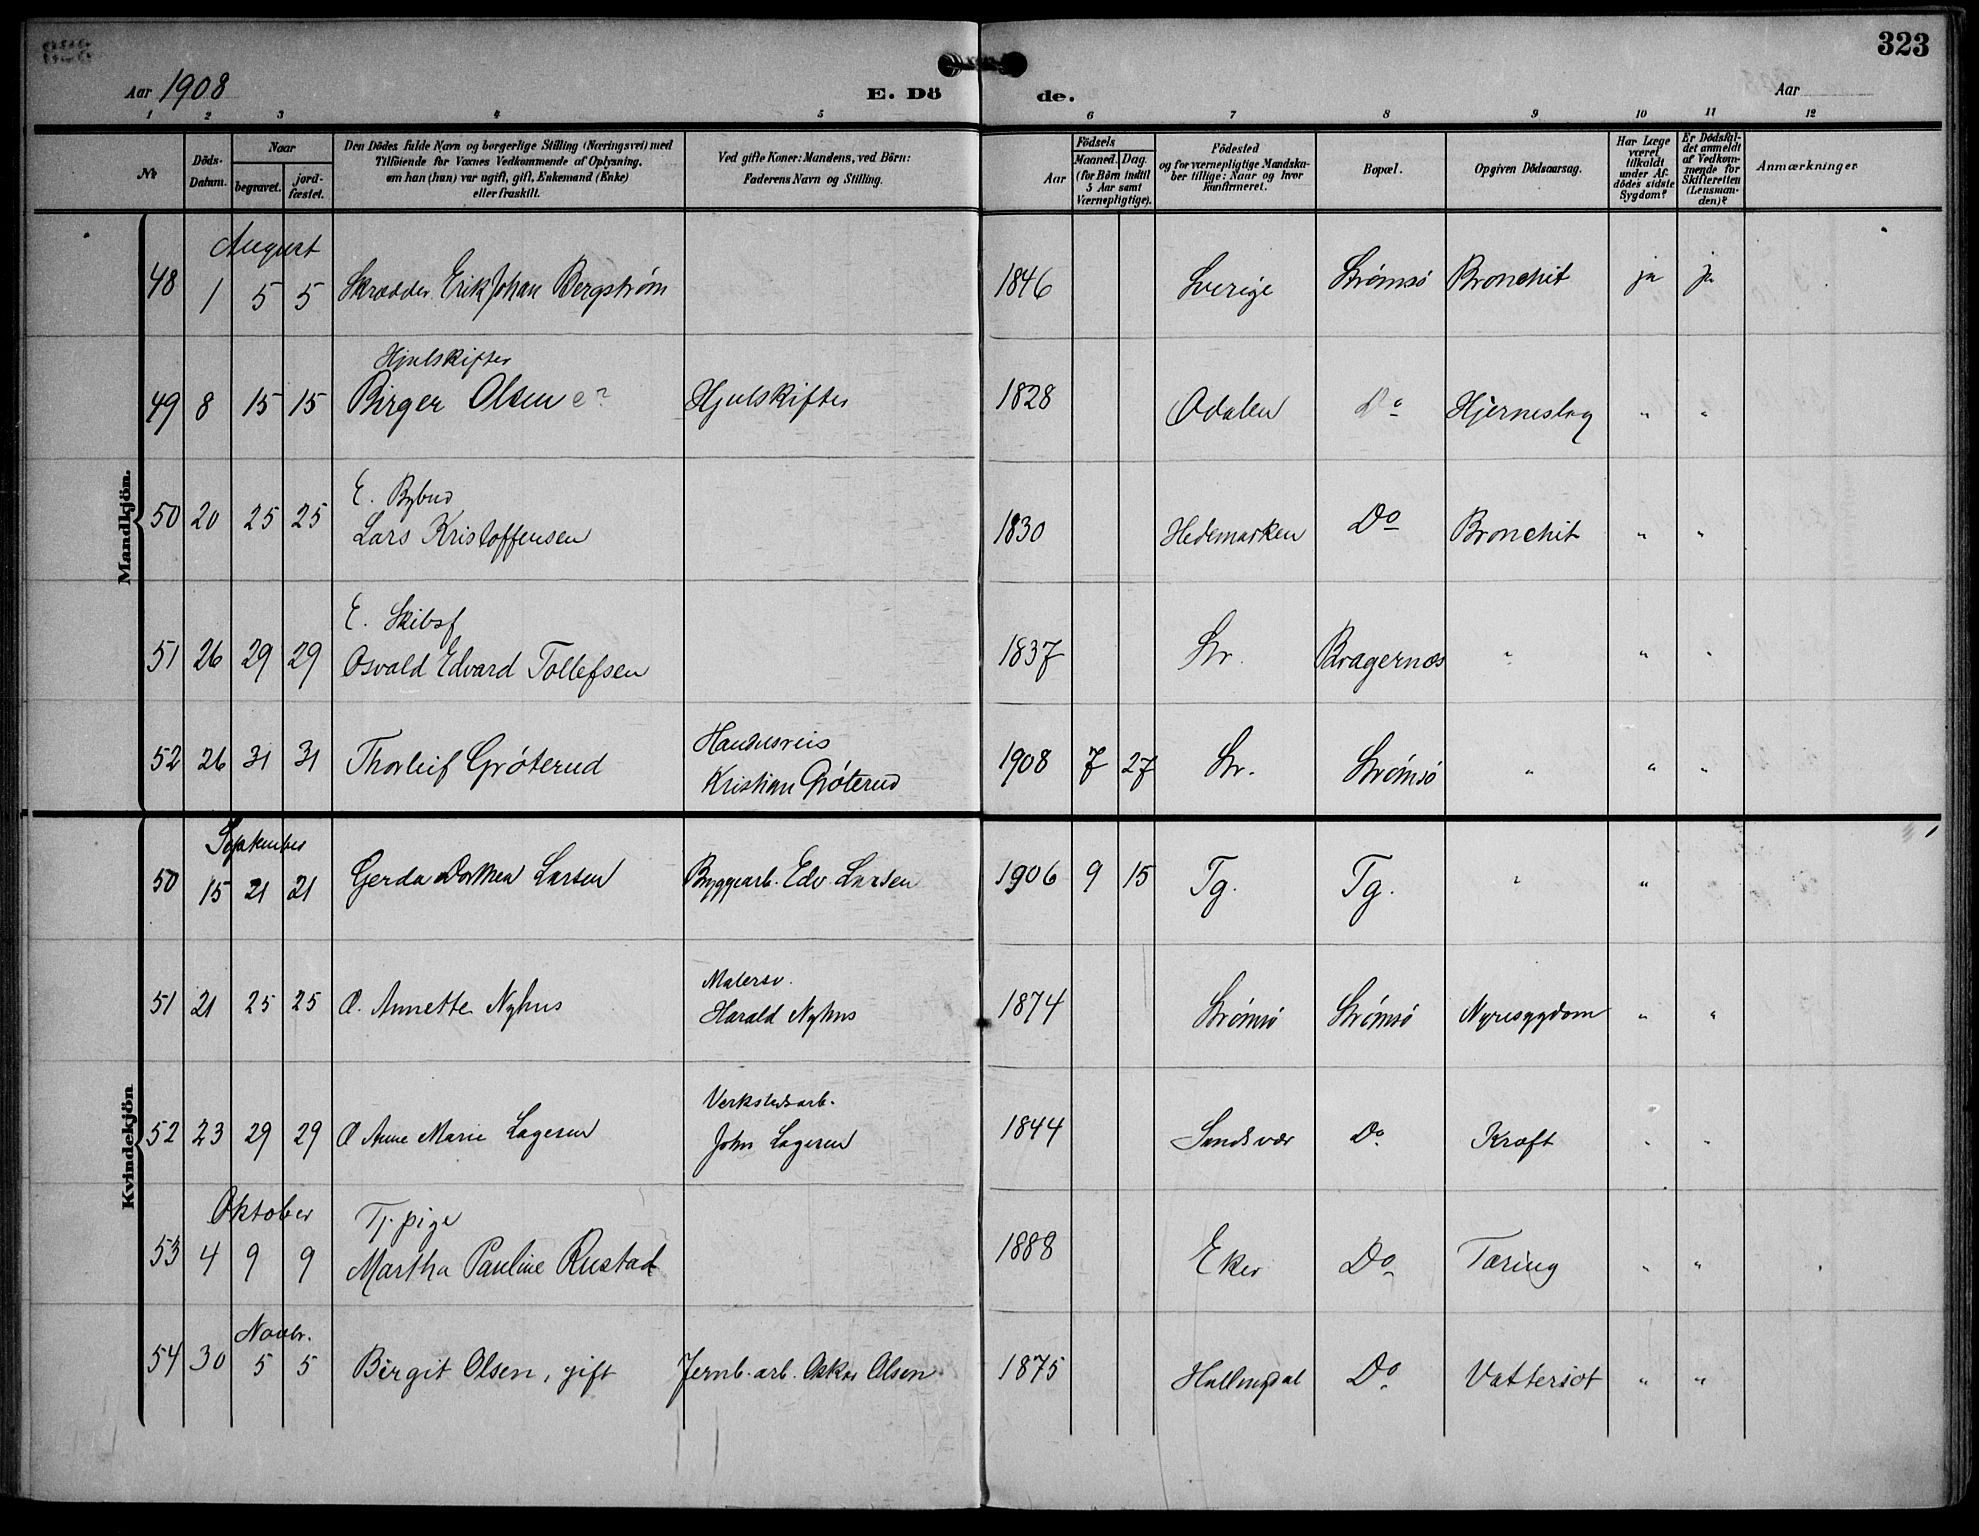 323
Aar 1908 E. Dö de. Aar
1 2 3 4 5 6 7 8 9 10 11 12
№ | Döds-Datum. | Naar begravet. | jordfæstet. | Den Dödes fulde Navn og borgerlige Stilling (Næringsvei) med Tilföiende for Voxnes Vedkommende af Oplysning, om han (hun) var ugift, gift, Enkemand (Enke) eller fraskilt. | Ved gifte Koner: Mandens, ved Börn: Faderens Navn og Stilling. | Födsels Aar | Maaned. Dag. (for Börn indtil 5 Aar samt Værnepligtige). | Födested og for værnepligtige Mandskaber tillige: Naar og hvor konfirmeret. | Bopæl. | Opgiven Dödsaarsag. | Har Læge været tilkaldt under Afdödes sidste Sygdom? | Er Dödsfaldet anmeldt af Vedkommende for Skifteretten (Lensmanden)? | Anmærkninger
Mandkjön.
August
48 1 5 5 Skrædder Erik Johan Bergstrøm 1846 Sverige Strømsø Bronchit ja ja
Hjulskifter
49 8 15 15 Birger Olsen e? Hjulskifter 1828 Odalen Do Hjerneslag " "
E. Bybud
50 20 25 25 Lars Kristoffensen 1830 Hedemarken Do Bronchit " "
E. Skibsf
51 26 29 29 Osvald Edvard Tollefsen 1837 Str. Bragernæs " " "
Handelsreis
52 26 31 31 Thorleif Grøterud Kristian Grøterud 1908 7 27 Str. Strømsø " " "
Kvindekjön
September
50 15 21 21 Gerda Dorthea Larsen Byggearb. Edv. Larsen 1906 9 15 Tg. Tg. " "
Malersv.
51 21 25 25 O. Annette Nyhus Harald Nyhus 1874 Strømsø Strømsø Nyresygdom " "
Verkstedsarb.
52 23 29 29 O Anne Marie Lageren John Lageren 1844 Sandsvær Do Kræft " "
Oktober
Tj. pige
53 4 9 9 Martha Pauline Rustad 1888 Eker Do Tæring " "
Novbr.
54 30 5 5 Birgit Olsen, gift Jernb. arb. Oskar Olsen 1875 Hallingdal Do Vattersot " "